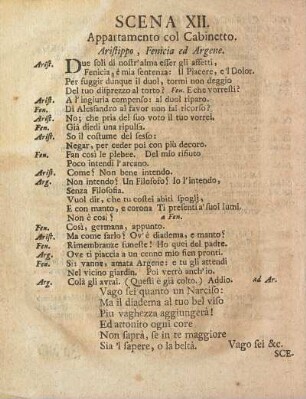 SCENA XII.
Appartamento col Cabinetto.
Aristippo, Fenicia ed Argene.
Arist. Due soli di nostr'alma esser gli affetti,
Fenicia, è mia sentenza: Il Piacere, e 'l Dolor.
Per fuggir dunque il duol, tormi non deggio
Del tuo disprezzo al torto? Fen. E che vorresti?
Arist. A l'ingiuria compenso: al duol riparo.
Fen. Di Alessandro al favor non fai ricorso?
Arist. No; che pria del suo voto il tuo vorrei.
Fen. Già diedi una ripulsa.
Arist. So il costume del sesso:
Negar, per ceder poi con più decoro.
Fen. Fan così le plebee. Del mio rifiuto
Poco intendi l'arcano.
Arist. Come? Non bene intendo.
Arg. Non intendo? Un Filosofo? Io l'intendo,
Senza Filosofia.
Vuol dir, che tu costei abiti spoglj,
E con manto, e corona Ti presenti a' suoi lumi.
Non è così? a Fen.
Fen. Così, germana, appunto.
Arist. Ma come farlo? Ov'è diadema, e manto?
Fen. Rimembranze funeste! Ho quei del padre.
Arg. Ove ti piaccia a un cenno mio sien pronti.
Fen. Sì: vanne, amata Argene: e tu gli attendi
Nel vicino giardin. Poi verrò anch'io.
Arg. Colà gli avrai. (Questi è già colto.) Addio. ad Ar.
Vago sei quanto un Narciso:
Ma il diadema al tuo bel viso
Più vaghezza aggiungerà!
Ed attonito ogni core
Non saprà, se in te maggiore
Sia 'l sapere, o la beltà. Vago sei &c.
SCE-